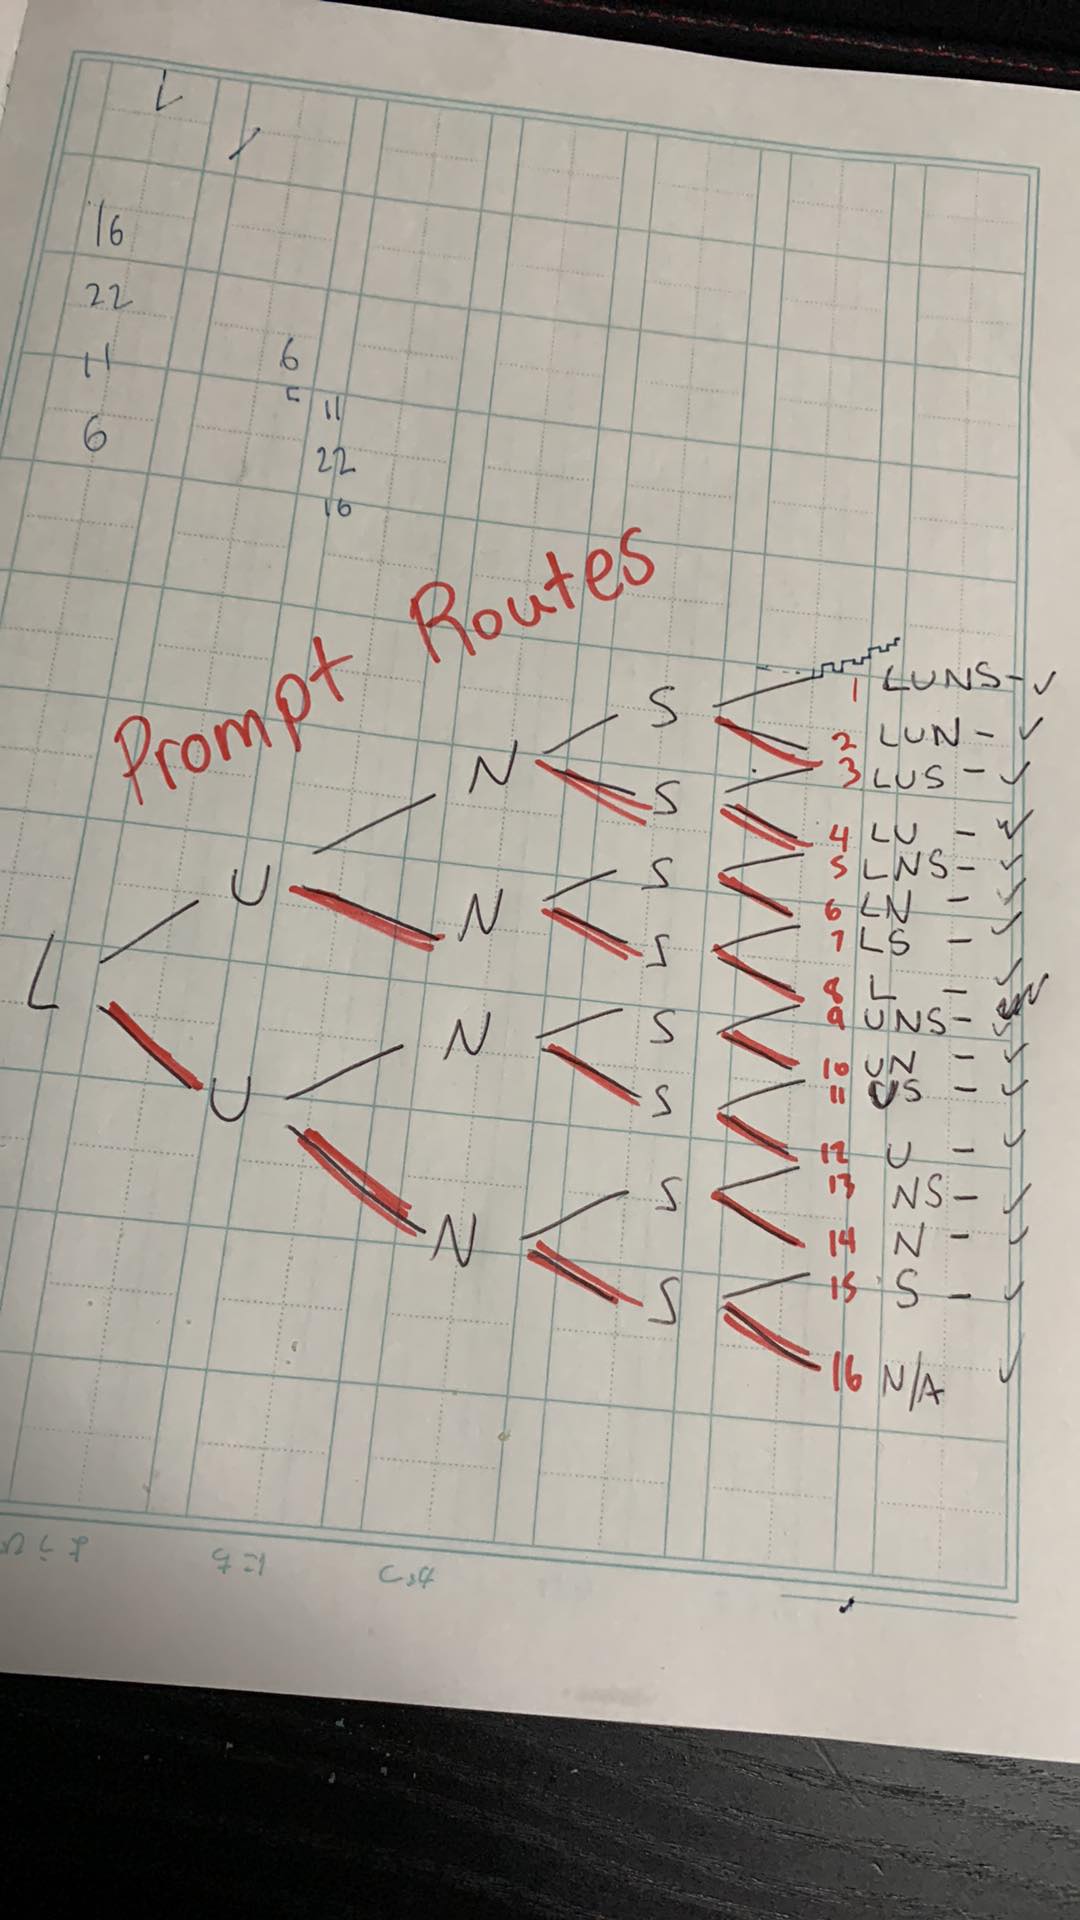 16
22
11
6
6
11
22
16
Prompt Routes
L
U
U
N
N
N
N
S
S
S
S
S
S
S
S
1 LUNS-✓
2 LUN - ✓
3 LUS - ✓
4 LU - ✓
5 LNS- ✓
6 LN - ✓
7 LS - ✓
8 L - ✓
9 UNS-
10 UN - ✓
11 US - ✓
12 U - ✓
13 NS- ✓
14 N - ✓
15 S - ✓
16 N/A ✓